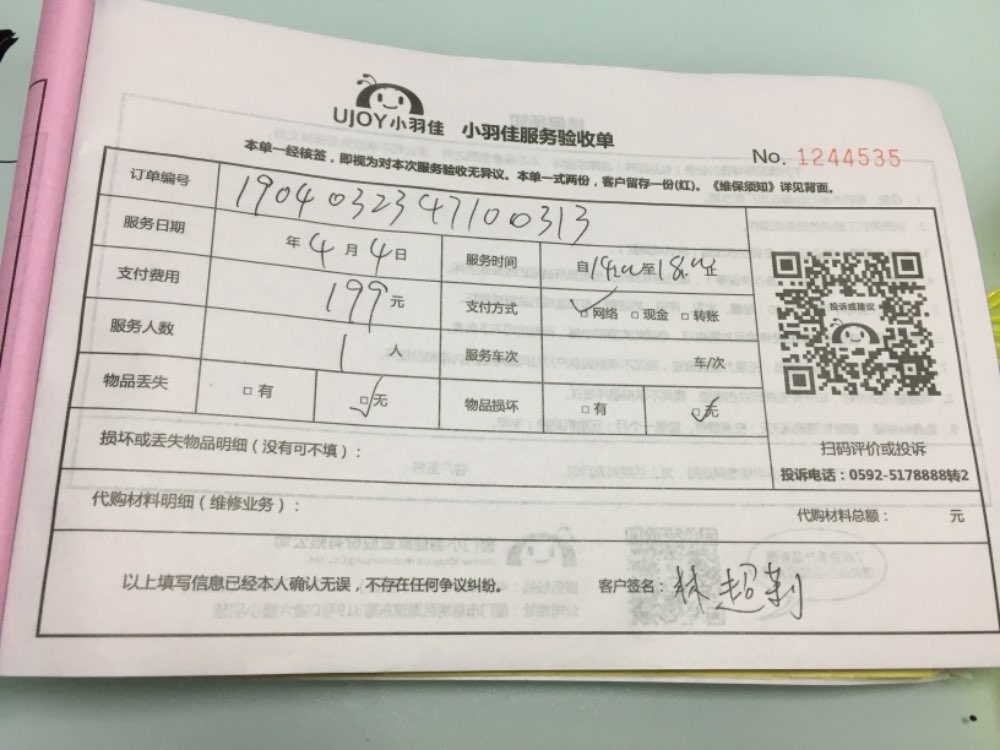 UJOY小羽佳 小羽佳服务验收单
No. 1244535
本单一经核签，即视为对本次服务验收无异议。本单一式两份，客户留存一份(红)。《维保须知》详见背面。
订单编号 1904032347100313
服务日期 年4月4日 服务时间 自14:00至18:00止
支付费用 199元 支付方式 网络 □现金 □转账
服务人数 1人 服务车次 车/次
物品丢失 □有 □无 物品损坏 □有 □无
投诉或建议
损坏或丢失物品明细（没有可不填）：
扫码评价或投诉
投诉电话：0592-5178888转2
代购材料明细（维修业务）：
代购材料总额： 元
以上填写信息已经本人确认无误，不存在任何争议纠纷。 客户签名：林超